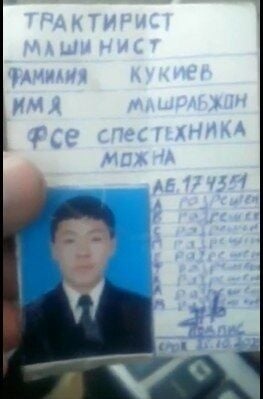 ТРАКТИРИСТ
МАШИНИСТ
ФАМИЛИЯ КУКИЕВ
ИМЯ МАШРАБЖОН
ФСЕ СПЕСТЕХНИКА
МОЖНА
АБ.174351
А разрешен
В разрешен
С разрешен
разрешен
Е разрешен
разрешен
разрешен
ПОДПИС
СРОК